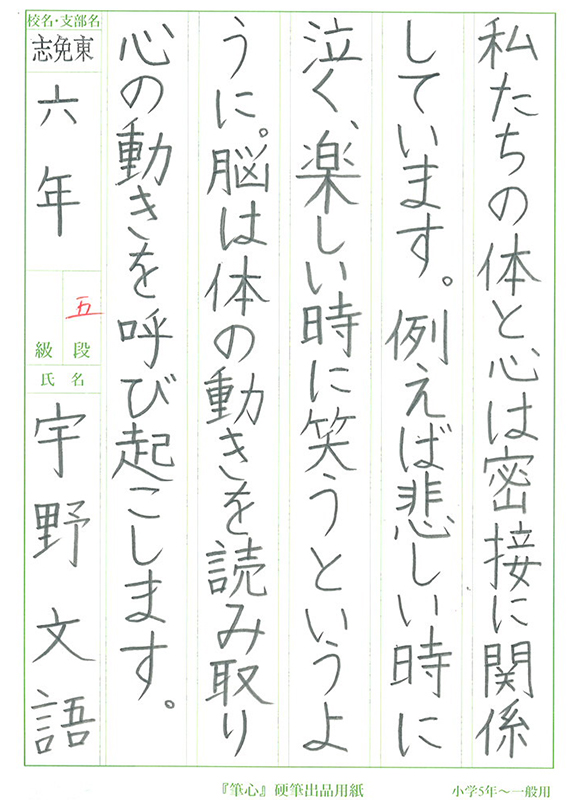 私たちの体と心は密接に関係
しています。例えば悲しい時に
泣く、楽しい時に笑うというよ
うに。脳は体の動きを読み取り
心の動きを呼び起こします。
校名・支部名
志免東
六年
五
級 段
氏 名
宇野文語
『筆心』硬筆出品用紙
小学5年〜一般用